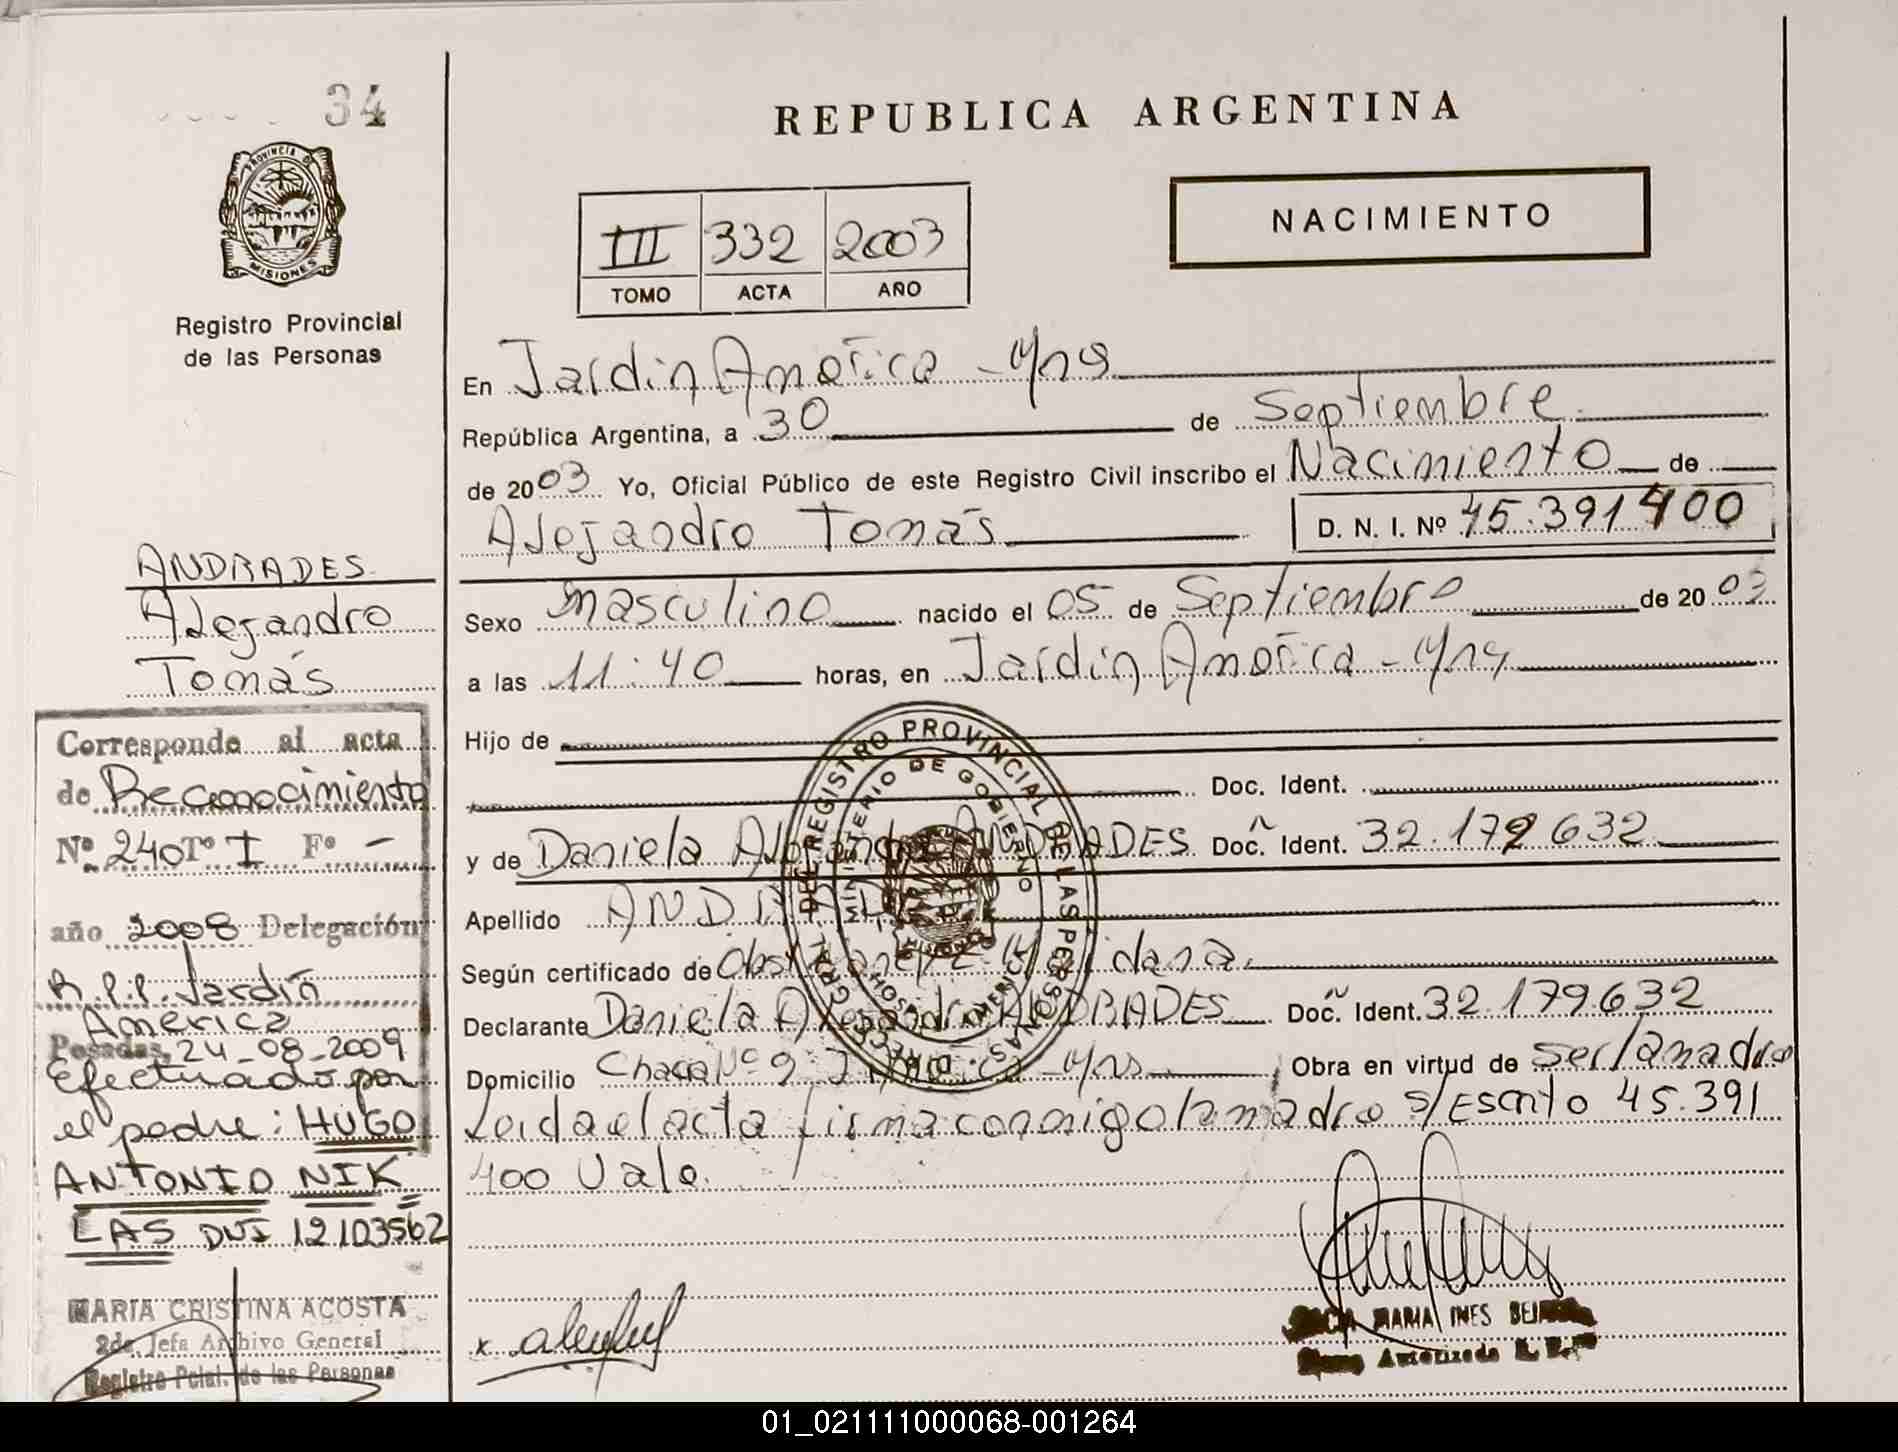 34
PROVINCIA DE
MISIONES
Registro Provincial
de las Personas
REPUBLICA ARGENTINA
III 332 2003
TOMO ACTA AÑO
NACIMIENTO
En Jardin América - Mns
República Argentina, a 30 de Septiembre
de 2003 Yo, Oficial Público de este Registro Civil inscribo el Nacimiento de
Alejandro Tomás D. N. I. Nº 45.391400
Sexo masculino nacido el 05 de Septiembre de 2003
a las 11:40 horas, en Jardin América - Mns
Hijo de
Doc. Ident.
y de Daniela Alejandra ANDRADES Doc. Ident. 32.179632
Apellido ANDRADES
Según certificado de Obst
Declarante Daniela Alejandra ANDRADES Doc. Ident. 32.179.632
Domicilio Chacra Nº 9 Mns Obra en virtud de ser la madre
Leida el acta firma conmigo la madre s/Escrito 45.391
400 Vale.
DIREC. GRAL. DEL REGISTRO PROVINCIAL DE LAS PERSONAS
MINISTERIO DE GOBIERNO
MISIONES
MARIA INES
Autorizada
ANDRADES
Alejandro
Tomás
Corresponde al acta
de Reconocimiento
Nº 240 Tº I Fº -
año 2008 Delegación
R.P.P. Jardín
América
Posadas, 24-08-2009
Efectuado por
el padre: HUGO
ANTONIO NIK=
LAS DNI 12103562
MARIA CRISTINA ACOSTA
2da. Jefa Archivo General
Registro Pcial. de las Personas
01_021111000068-001264